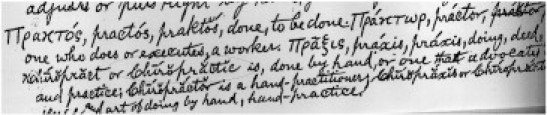 adjusts or puts right by hand
Πρακτός, practós, praktós, done, to be done. Πράκτωρ, práctor, práktor,
one who does or executes, a worker. Πρᾶξις, práxis, práxis, doing, deed,
Chiropract or Chiropractic is, done by hand, or one that advocates
and practice; Chiropractor is a hand-practitioner; Chiropráxis or Chiropractic
art of doing by hand, hand-practice.